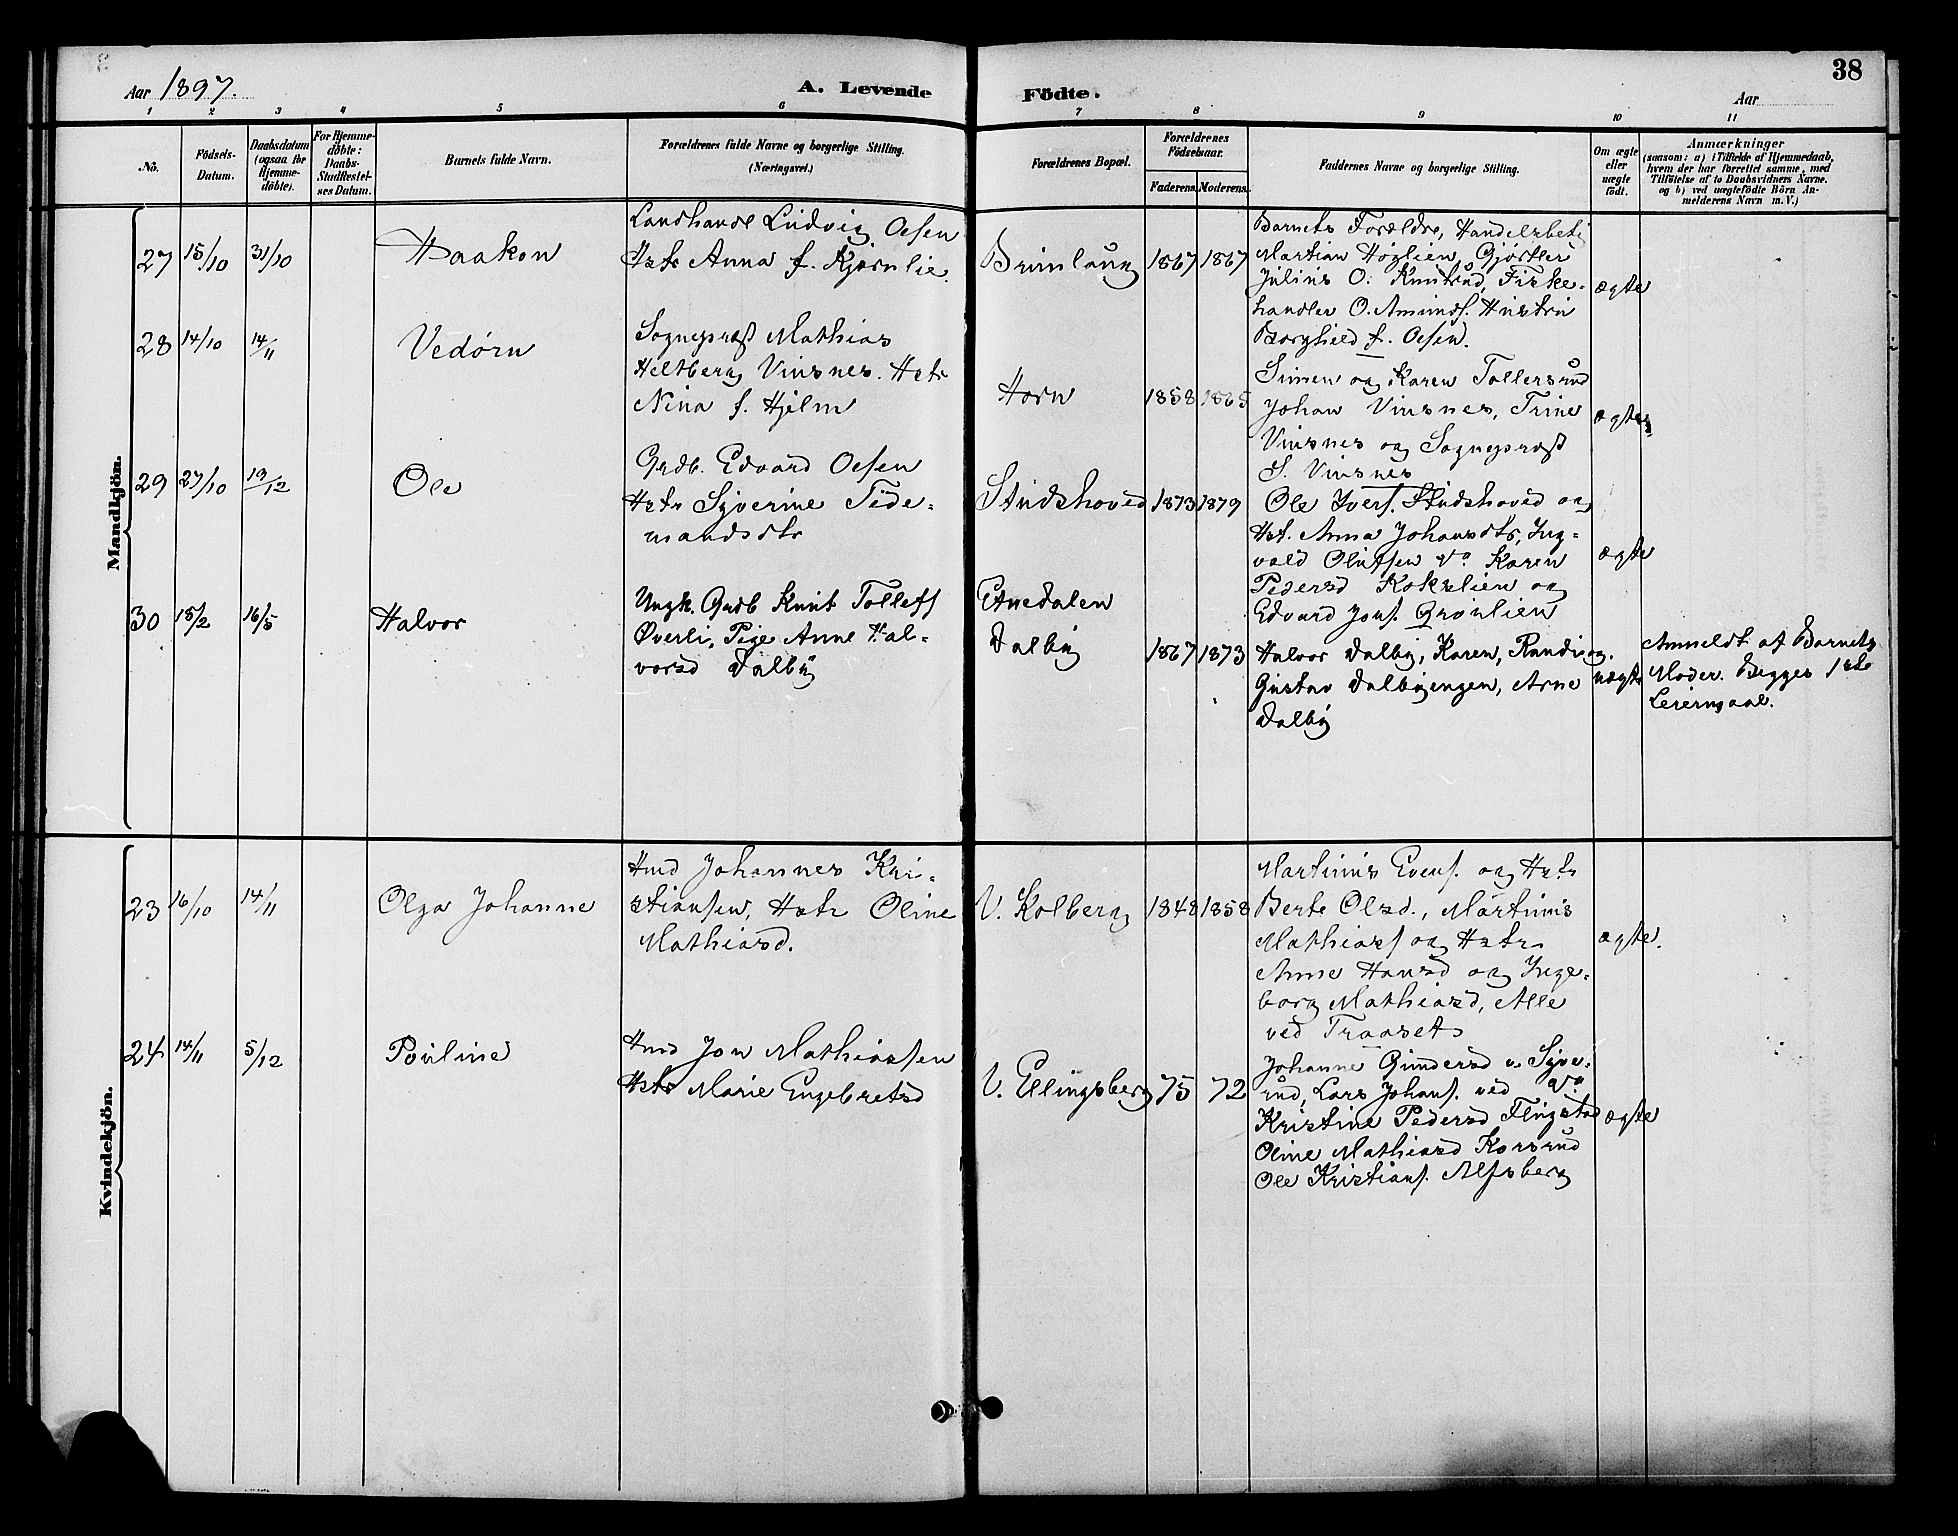 38
Aar 1897.
A. Levende Födte.
Aar
1 2 3 4 5 6 7 8 9 10 11
No.
Födsels-
Datum.
Daabsdatum
(ogsaa for
Hjemme-
döbte).
For Hjemme-
döbte:
Daabs-
Stadfæstel-
ses Datum.
Barnets fulde Navn.
Forældrenes fulde Navne og borgerlige Stilling.
(Næringsvei.)
Forældrenes Bopæl.
Forældrenes
Födselsaar.
Faderens. Moderens.
Faddernes Navne og borgerlige Stilling.
Om ægte
eller
uægte
födt.
Anmærkninger
(saasom: a) i Tilfælde af Hjemmedaab,
hvem der har forrettet samme, med
Tilföielse af to Daabsvidners Navne,
og b) ved uægtefödte Börn An-
melderens Navn m. V.)
Mandkjön.
27 15/10 31/10 Haakon
Landhandl Ludvig Olsen
Hstr Anna f. Kjærnlie.
Brimlaug 1867 1867
Barnets Forældre, Handelsbetj
Martian Høglien, Gjørtler
Julius O. Knutsud, Fiske-
handler O. Amunds. Hustru
Borghild f. Olsen.
ægte
28 14/10 14/11 Vedørn
Sogneprest Mathias
Heltberg Vinsnes. Hstr
Nina f. Hjelm
Horn 1858 1865
Simen og Karen Tollersrud
Johan Vinsnes, Trine
Vinsnes og Sogneprest
S. Vinsnes
ægte
29 27/10 19/12 Ole
Grdb. Edvard Olsen
Hstr Syverine Tide-
mandsdtr
Studshoved 1873 1879
Ole Ivers. Studshoved og
Hst. Anna Johansdtr, Ing-
vald Olufsen Karen
Pedersd Kokslien og
Edvard Jons. Grønlien
ægte
30 15/2 16/5 Halvor
Ungk. Grdb Knut Tollefs
Øverli, Pige Anne Hal-
vorsd Dalby
Etnedalen
Dalby 1867 1873
Halvor Dalby, Karen, Randi og
Gustav Dalbyengen, Arne
Dalby
uægte
Anmeldt af Barnets
Moder. Begges 1ste
Leiermaal.
Kvindekjön.
23 16/10 14/11 Olga Johanne
Hmd Johannes Kri-
stiansen, Hstr Oline
Mathiasd.
V. Kolberg 1848 1858
Martinus Evens. og Hstr
Berte Olsd., Martinus
Mathias og Hstr
Anne Hansd og Inge-
borg Mathiasd, Alle
ved Traaset
ægte.
24 14/11 5/12 Pouline
Hmd Jon Mathiassen
Hstr Marie Engebretsd
V. Ellingsberg 75 72
Johanne Gundersd v. Syve-
rud, Lars Johans. ved
Kristine Pedersd Flugstad
Oline Mathiasd Korsrud
Ole Kristians. Alfsberg
ægte